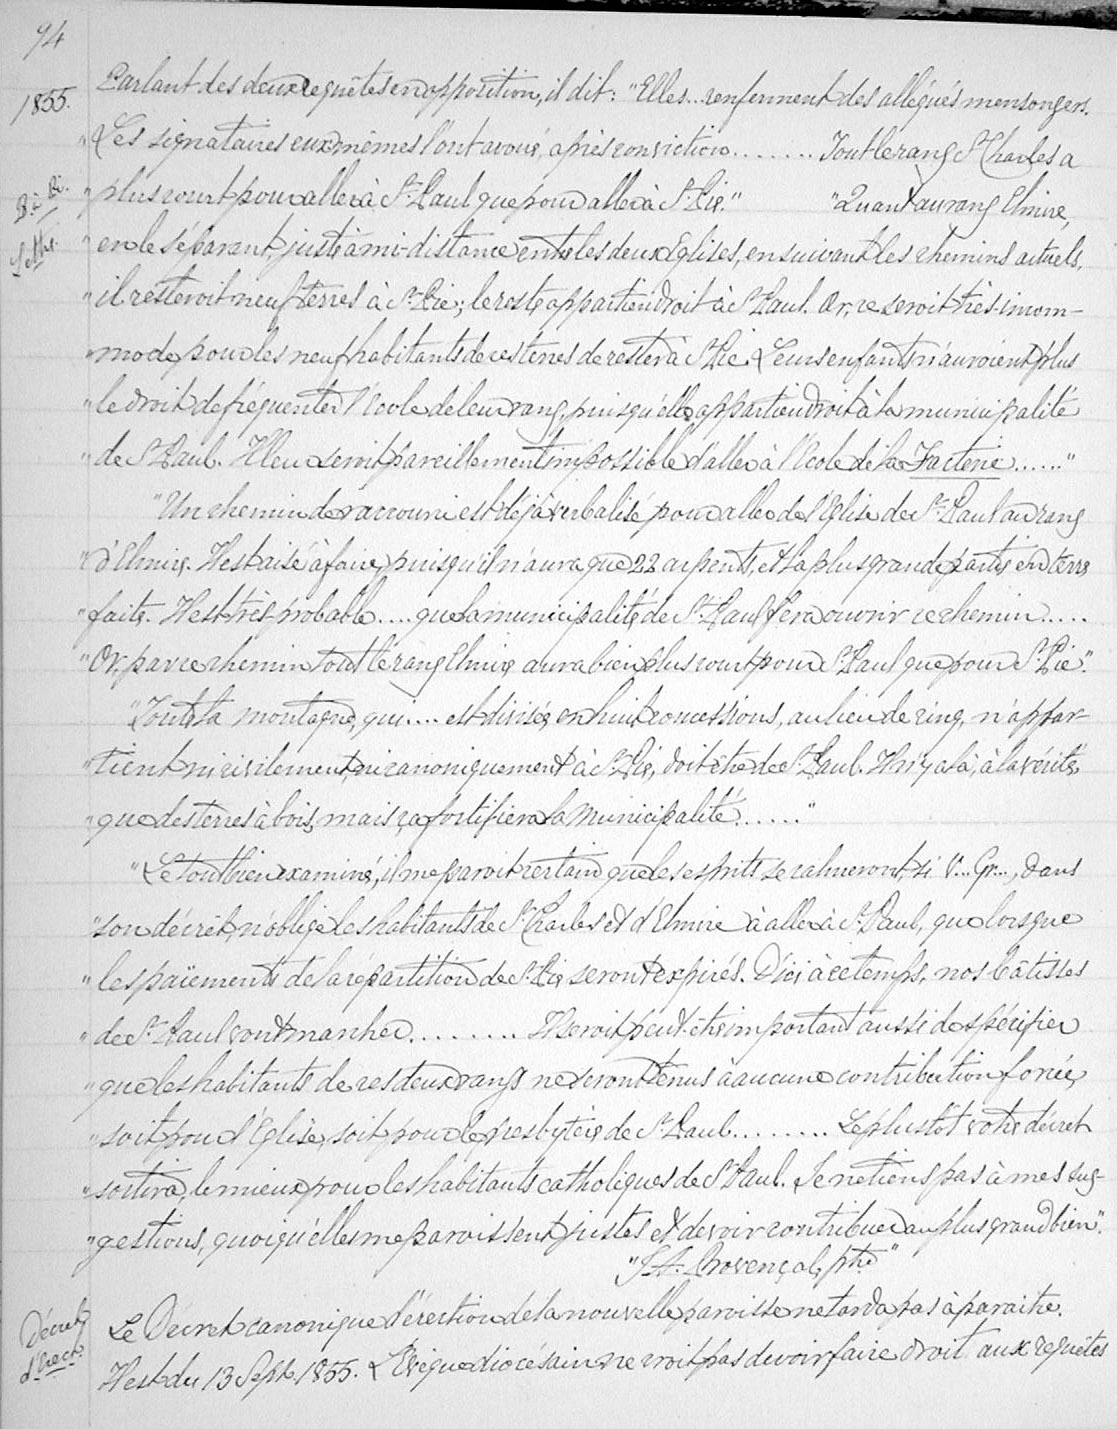 94
1855.
Parlant des deux requêtes en opposition, il dit: "Elles... renferment des allégués mensongers.
"Les signataires eux-mêmes l'ont avoué, après conviction........ Tout le rang St Charles a
"plus court pour aller à St. Paul que pour aller à St. Pie." "Quant au rang Elmire,
"en le séparant, juste à mi-distance entre les deux Eglises, en suivant les chemins actuels,
"il resteroit neuf terres à St. Pie; le reste appartiendroit à St. Paul. Or, ce seroit très-incom-
"mode, pour les neuf habitants de ces terres de rester à St. Pie. Leurs enfants n'auroient plus
"le droit de fréquenter l'école de leur rang, puisqu'elle appartiendroit à la municipalité
"de St. Paul. Il leur seroit pareillement impossible d'aller à l'école de la Factorie......"
"Un chemin de raccourci est déjà verbalisé pour aller de l'Eglise de St. Paul au rang
"d'Elmire. Il est aisé à faire, puisqu'il n'aura que 22 arpents, et la plus grande partie en terre
"faite. Il est très-probable.... que la municipalité de St. Paul fera ouvrir ce chemin.....
"Or, par ce chemin tout le rang Elmire aura bien plus court pour St. Paul que pour St. Pie."
"Toute la montagne, qui.... est divisée, en huit concessions, au lieu de cinq, n'appar-
"tient ni civilement, ni canoniquement à St. Pie, doit être de St. Paul. Il n'y a là, à la vérité,
"que des terres à bois, mais ça fortifiera la Municipalité......"
"Le tout bien examiné, il me paroit certain que les esprits se calmeront, si V... Gr..., dans
"son décret, n'oblige les habitants de St. Charles et d'Elmire à aller à St. Paul, que lorsque
"les païements de la répartition de St. Pie seront expirés. D'ici à ce temps, nos bâtisses
"de St. Paul vont marcher......... Il seroit peut-être important aussi de spécifier
"que les habitants de ces deux rangs ne seront tenus à aucune contribution forcée,
"soit pour l'Eglise, soit pour le presbytère de St. Paul......... Le plus tôt votre décret
"sortira, le mieux pour les habitants catholiques de St. Paul. Je ne tiens pas à mes sug-
"gestions, quoiqu'elles me paroissent justes et devoir contribuer au plus grand bien."
"J. A. Provençal, ptre"
Décret
d'érect.
Le Décret canonique d'érection de la nouvelle paroisse ne tarda pas à paraitre.
Il est du 13 Sept. 1855. L'Evêque diocésain ne croit pas devoir faire droit aux requêtes